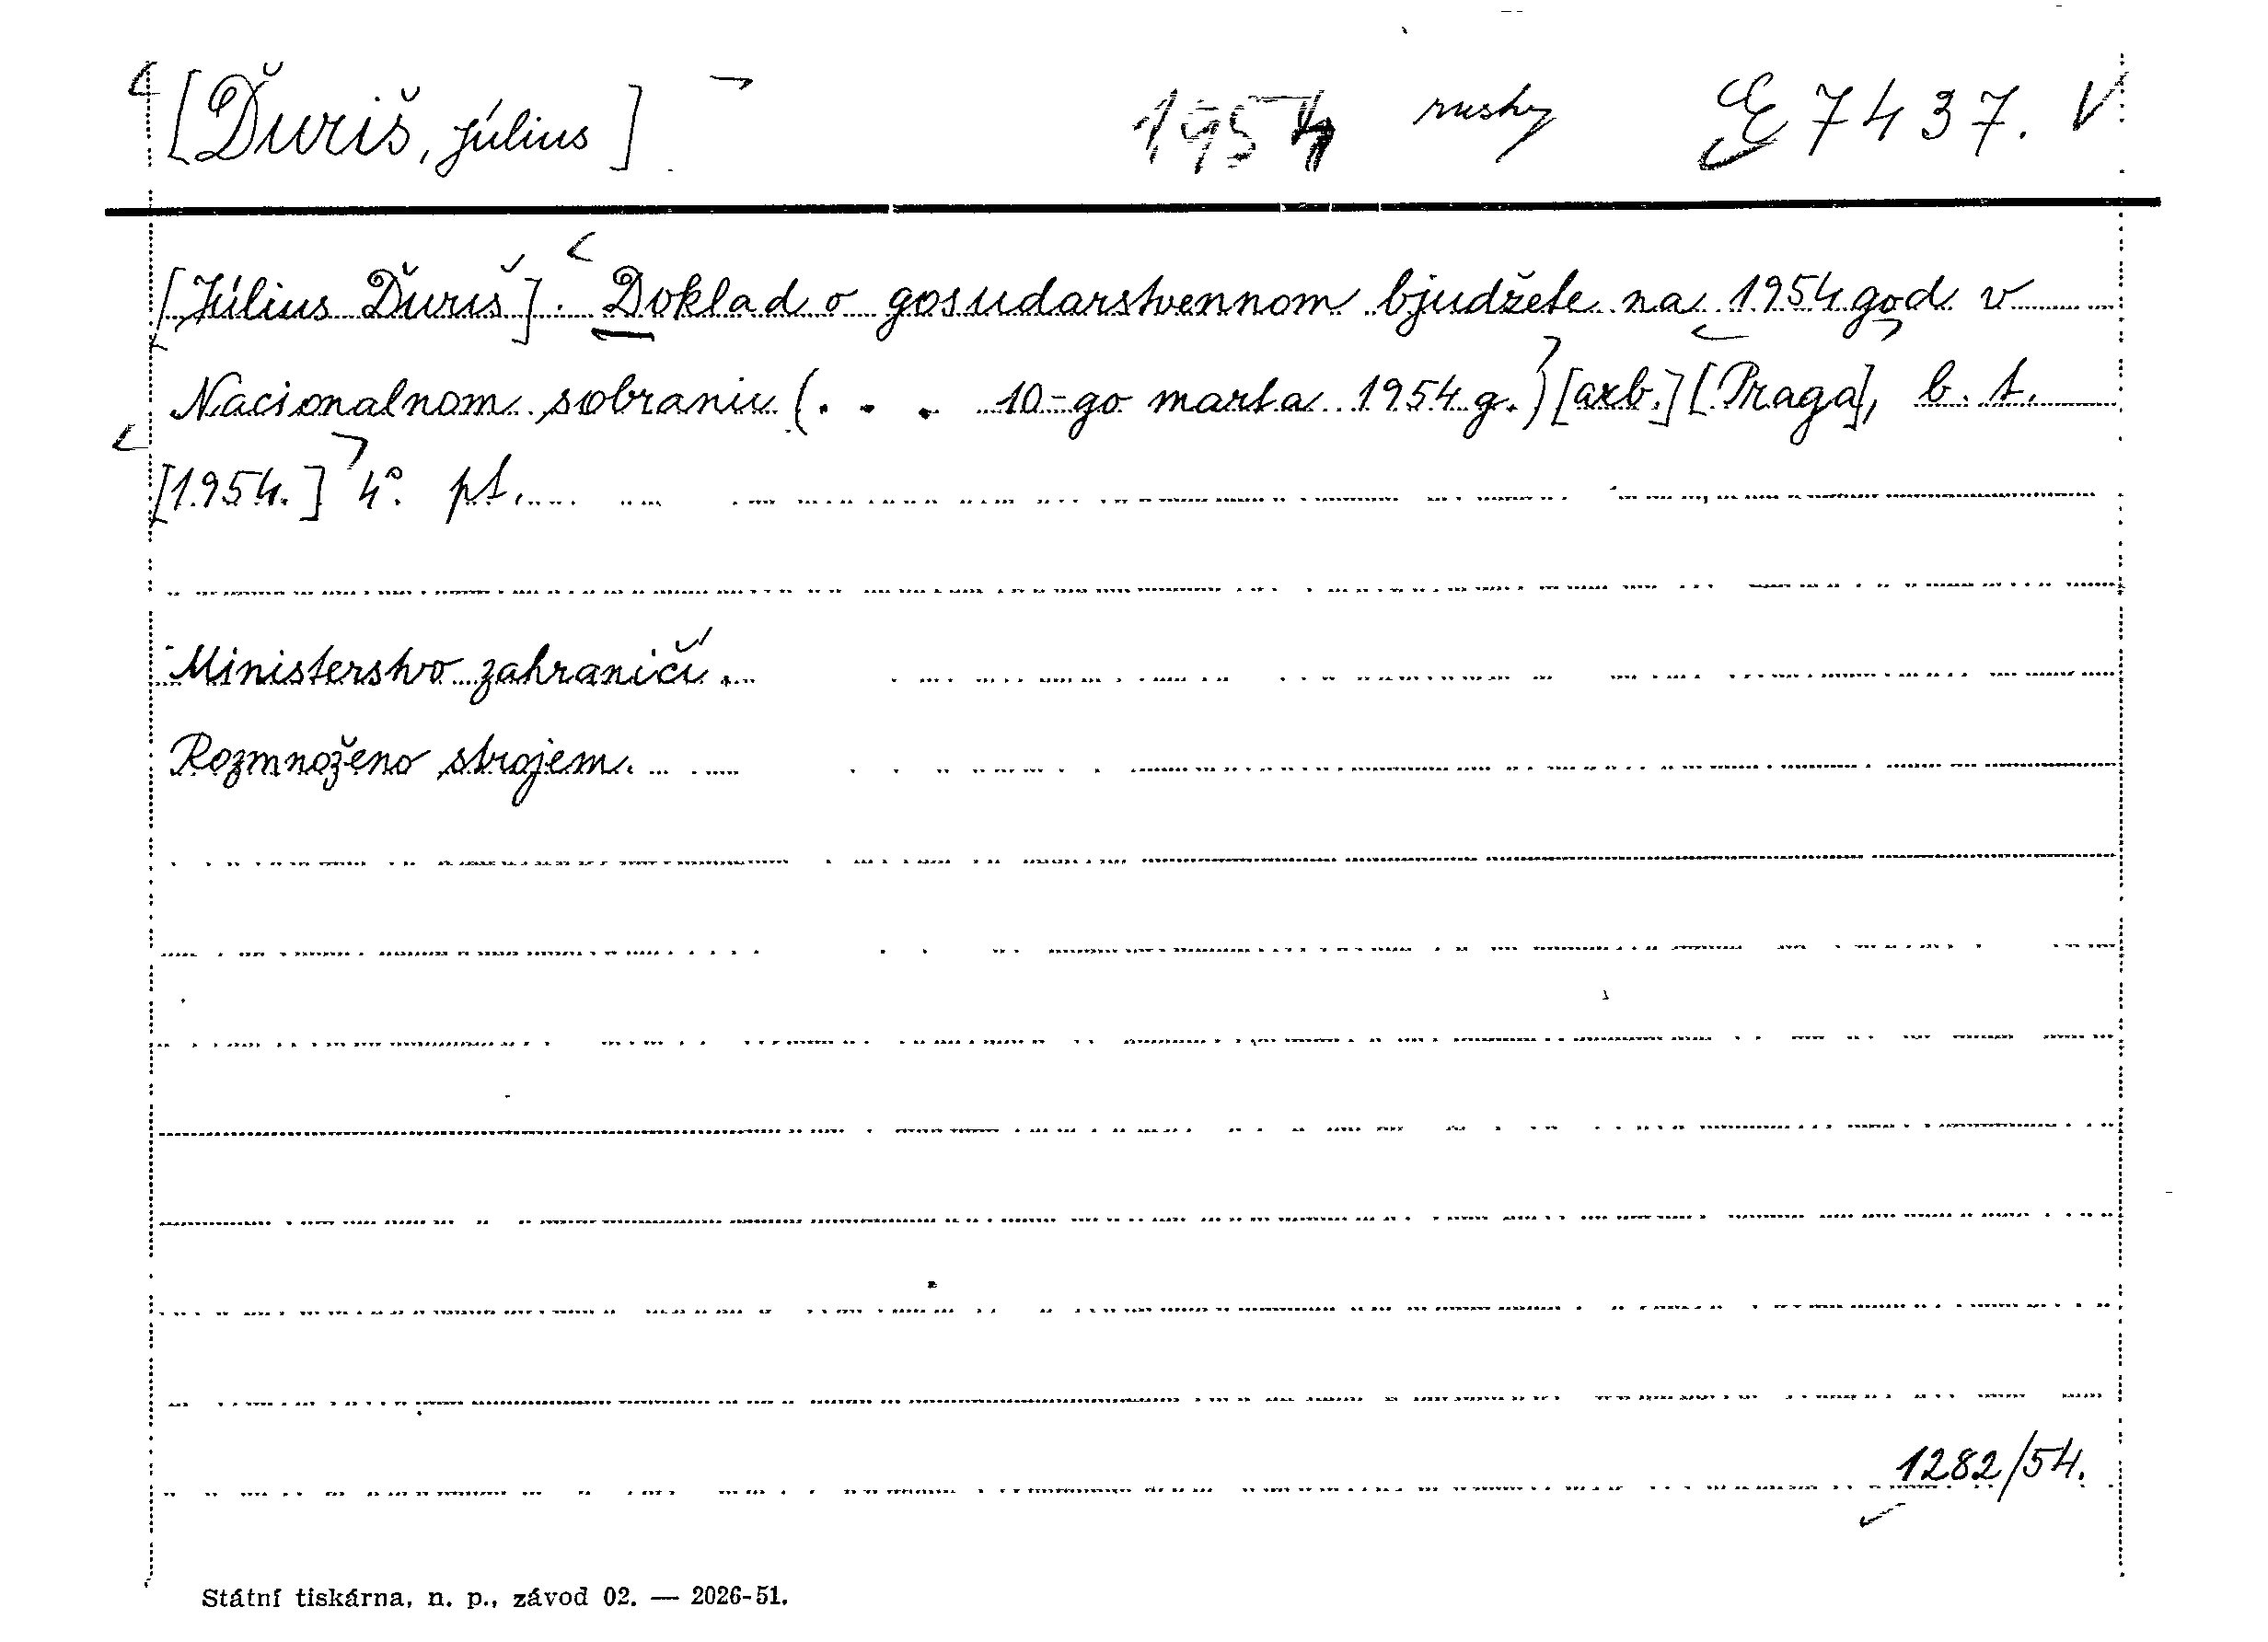 [Ďuriš, Július] 1954 rusky E 7437. V
[Július Ďuriš]. Doklad o gosudarstvennom bjudžete na 1954 god v
Nacionalnom sobranii (. . . 10-go marta 1954 g.) [arb.] [Praga], b. t.
[1954.] 4°. pt.
Ministerstvo zahraničí.
Rozmnoženo strojem.
1282/54.
Státní tiskárna, n. p., závod 02. — 2026-51.